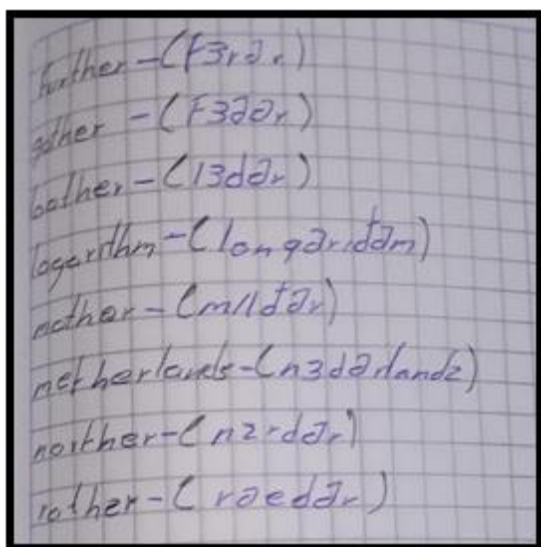 further - (f3rər)
gather - (F3ðər)
bother - (l3dər)
logerithm - (longəriđəm)
mother - (m/lđər)
netherlands - (n3dərlandz)
noither - (nzrdər)
rother - (rəedər)